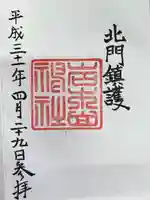 北門鎮護
岩木山
神社
平成三十一年四月二十九日参拝